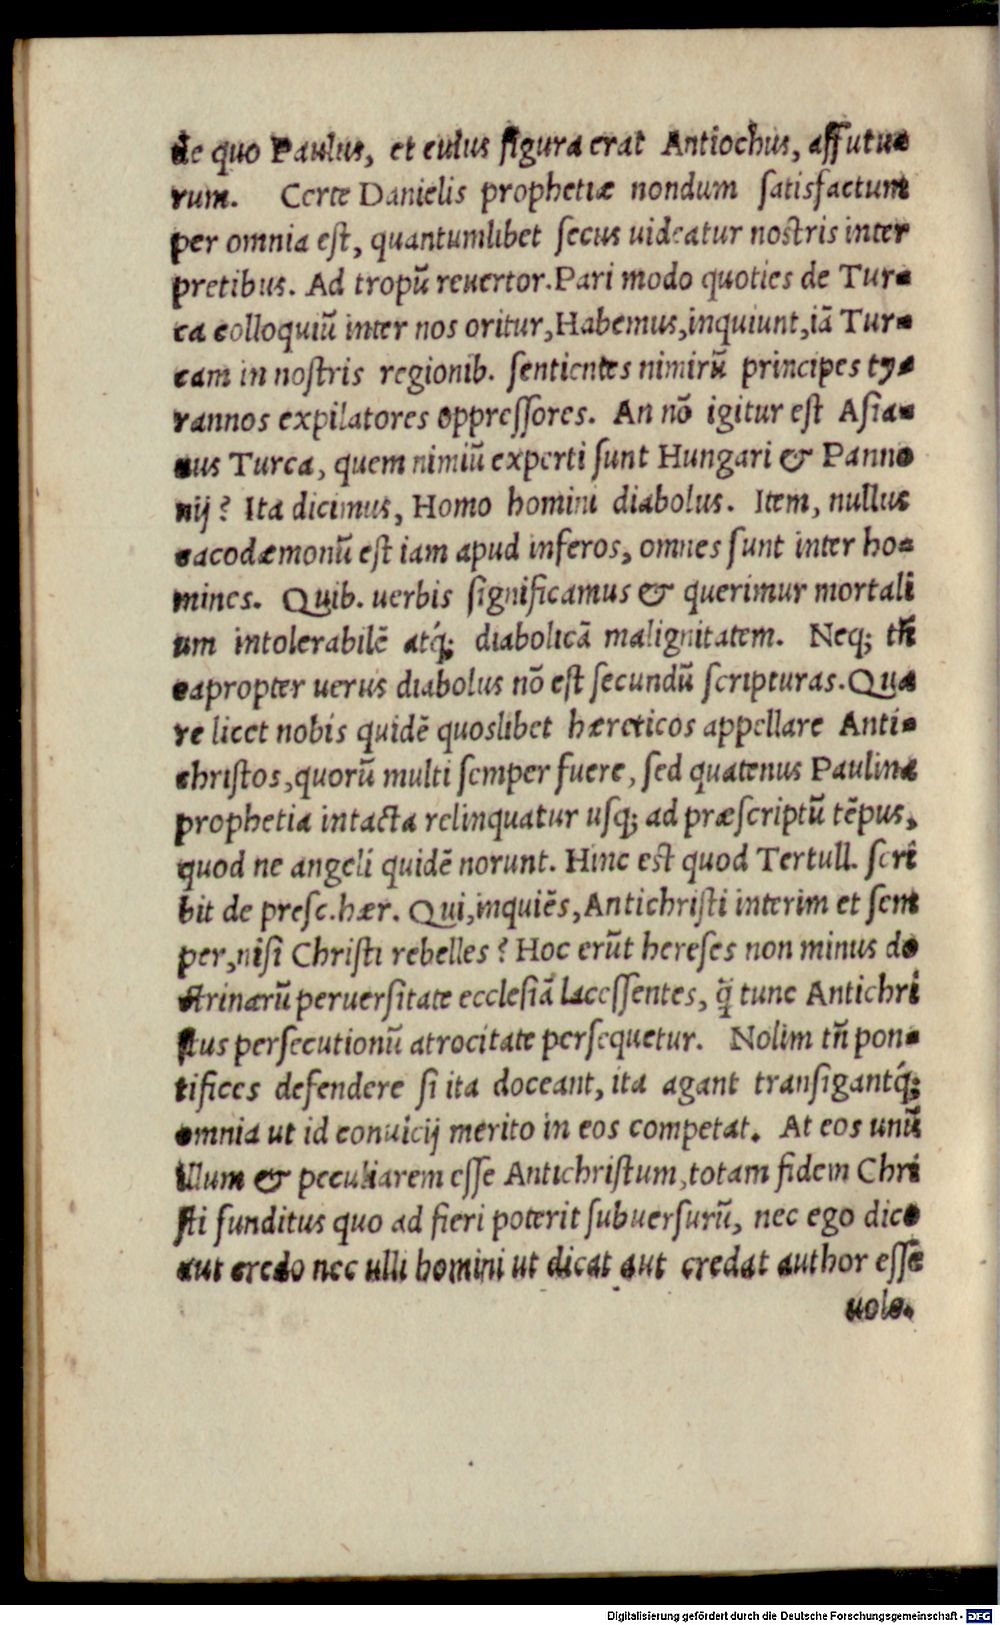 de quo Paulus, et cuius figura erat Antiochus, affutu-
rum. Certe Danielis prophetiæ nondum satisfactum
per omnia est, quantumlibet secus uideatur nostris inter
pretibus. Ad tropũ reuertor. Pari modo quoties de Tur-
ca colloquiũ inter nos oritur, Habemus, inquiunt, iã Tur-
cam in nostris regionib. sentientes nimirũ principes ty-
rannos expilatores oppressores. An nõ igitur est Asia-
nus Turca, quem nimiũ experti sunt Hungari & Panno
nij? Ita dicimus, Homo homini diabolus. Item, nullus
cacodæmonũ est iam apud inferos, omnes sunt inter ho-
mines. Quib. uerbis significamus & querimur mortali
um intolerabilẽ atq́; diabolicã malignitatem. Neq; tñ
eapropter uerus diabolus nõ est secundũ scripturas. Qua
re licet nobis quidẽ quoslibet hæreticos appellare Anti-
christos, quorũ multi semper fuere, sed quatenus Paulina
prophetia intacta relinquatur usq; ad præscriptũ tẽpus,
quod ne angeli quidẽ norunt. Hinc est quod Tertull. scri
bit de presc. hær. Qui, inquiẽs, Antichristi interim et sem
per, nisi Christi rebelles? Hoc erũt hereses non minus do
ctrinarũ peruersitate ecclesiã lacessentes, q̃ tunc Antichri
stus persecutionũ atrocitate persequetur. Nolim tñ pon-
tifices defendere si ita doceant, ita agant transigantq́;
omnia ut id conuicij merito in eos competat. At eos unũ
illum & peculiarem esse Antichristum, totam fidem Chri
sti funditus quo ad fieri poterit subuersurũ, nec ego dico
aut credo nec ulli homini ut dicat aut credat author esse
uolo.
Digitalisierung gefördert durch die Deutsche Forschungsgemeinschaft - DFG